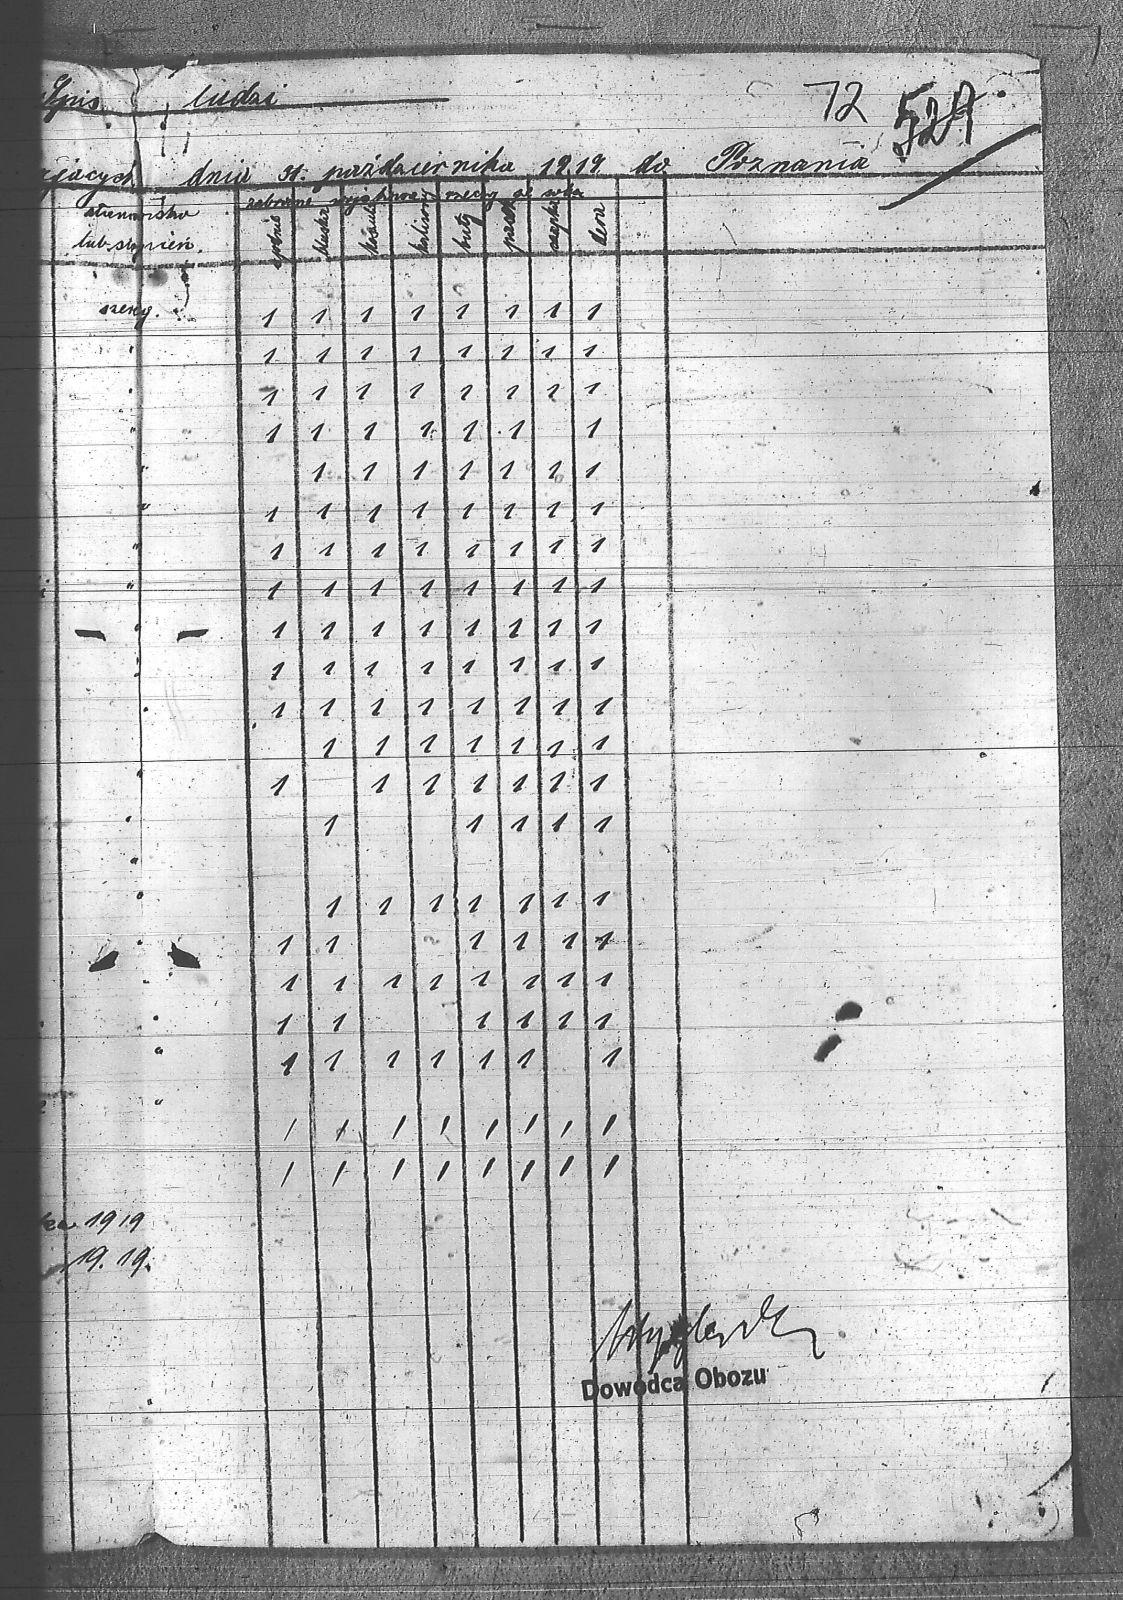 Spis ludzi 72
dnia 31. października 1919 do Poznania
zabrane rzeczy
stanowisko
lub stopień.
spodnie bluska koszule kalisony buty czapka
szereg.
1 1 1 1 1 1 1 1
" 1 1 1 1 1 1 1 1
" 1 1 1 1 1 1 1 1
" 1 1 1 1 1 1 1
" 1 1 1 1 1 1 1
" 1 1 1 1 1 1 1 1
" 1 1 1 1 1 1 1 1
" 1 1 1 1 1 1 1 1
" 1 1 1 1 1 1 1 1
" 1 1 1 1 1 1 1 1
" 1 1 1 1 1 1 1 1
1 1 1 1 1 1 1
" 1 1 1 1 1 1 1
" 1 1 1 1 1
"
" 1 1 1 1 1 1 1
" 1 1 1 1 1 1
" 1 1 1 1 1 1 1 1
" 1 1 1 1 1 1
" 1 1 1 1 1 1 1
"
1 1 1 1 1 1 1 1
1 1 1 1 1 1 1 1
1919
19.19.
Dowódca Obozu